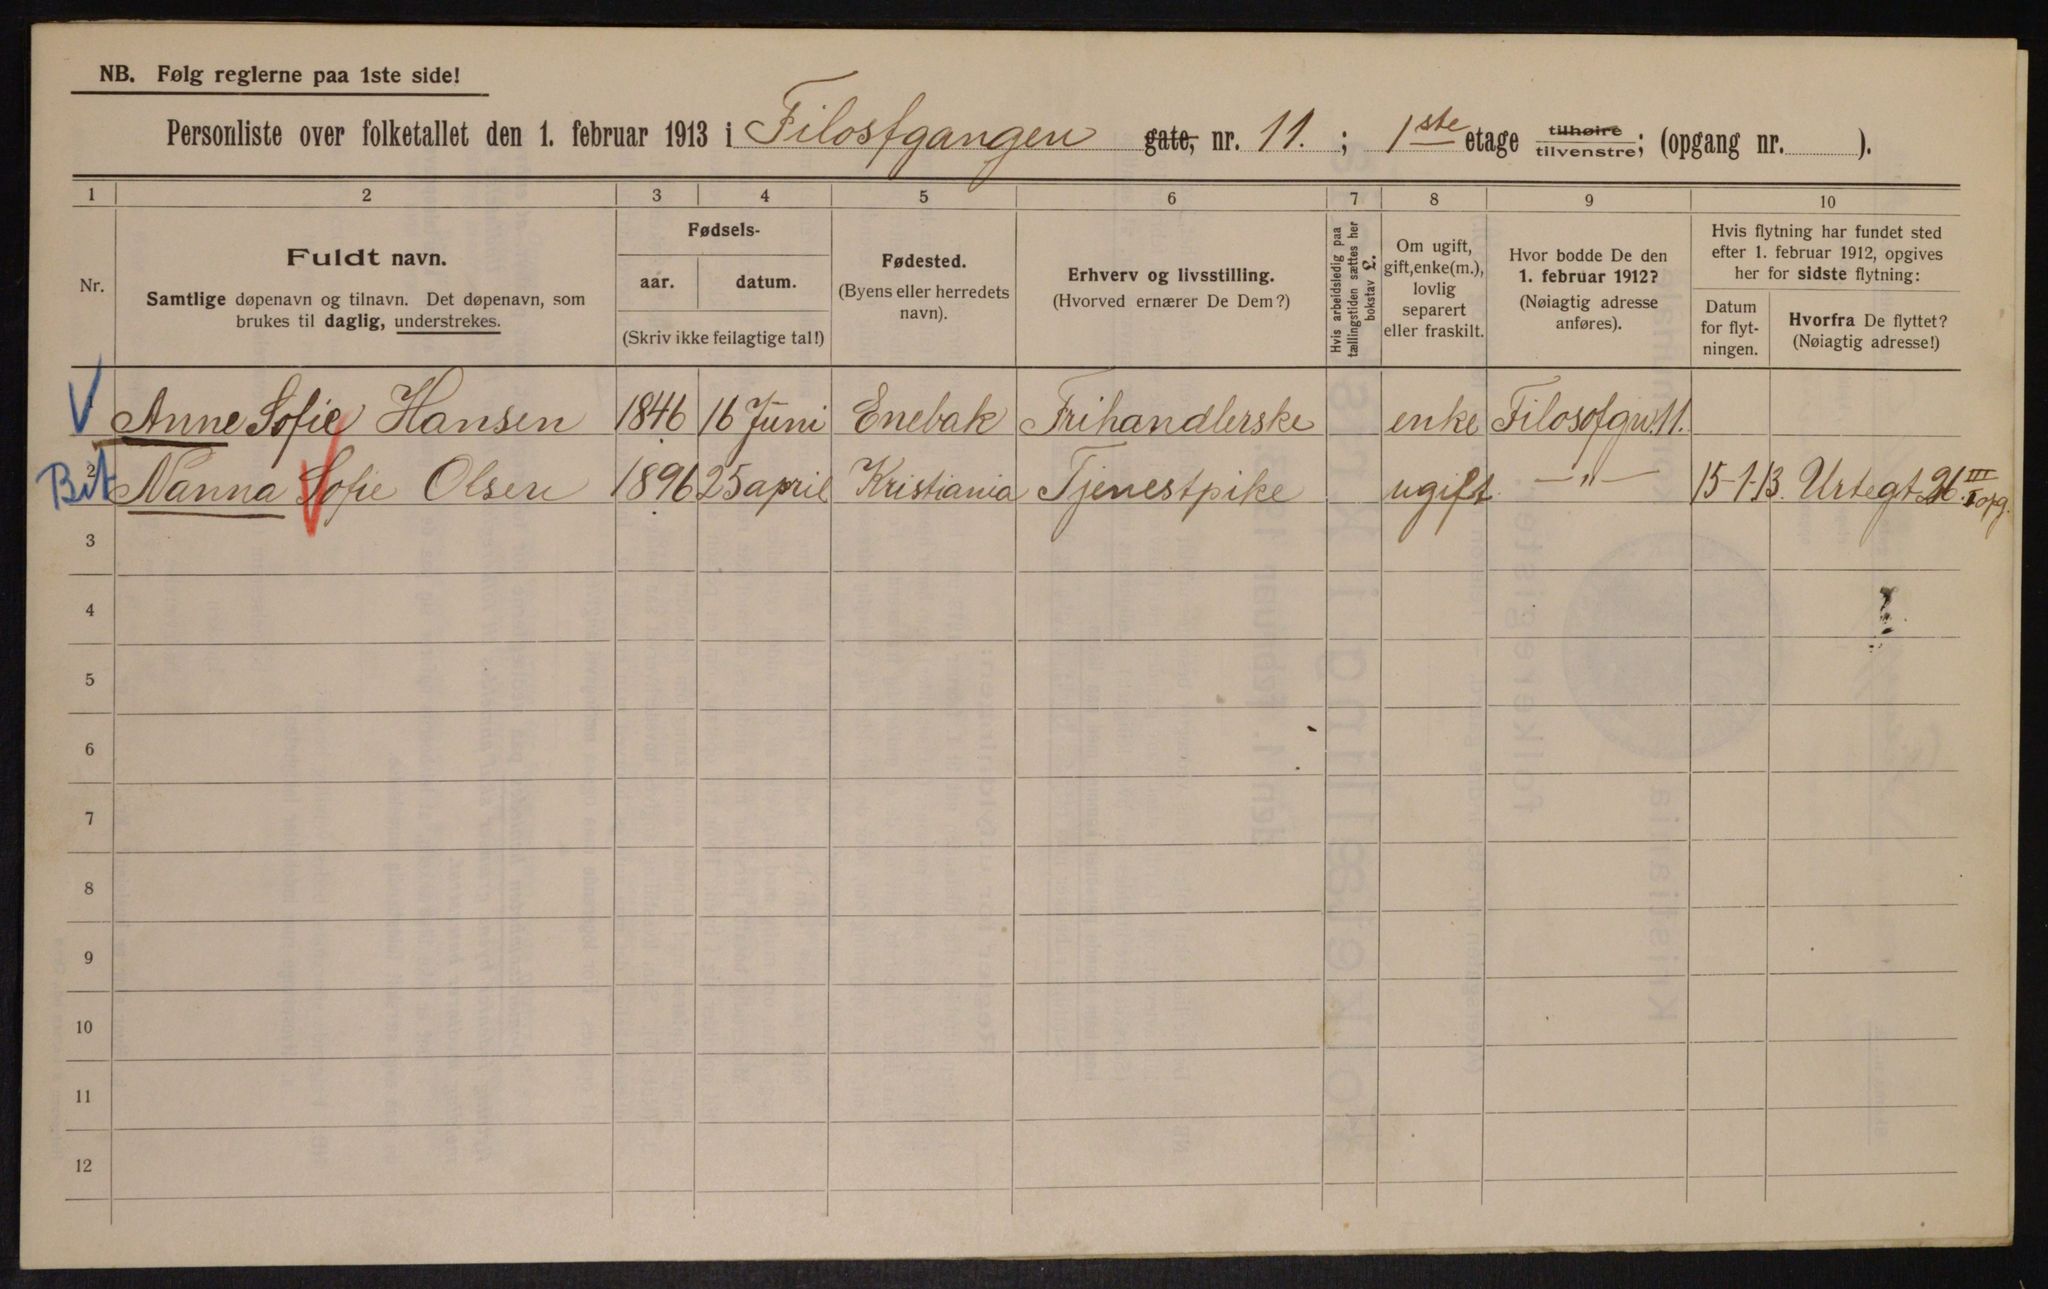 NB. Følg reglerne paa 1ste side!
Personliste over folketallet den 1. februar 1913 i Filosfgangen gate, nr. 11. ; 1ste etage tilhøire tilvenstre; (opgang nr. ).
1 2 3 4 5 6 7 8 9 10
Nr.
Fuldt navn.
Samtlige døpenavn og tilnavn. Det døpenavn, som
brukes til daglig, understrekes.
Fødsels-
aar. datum.
(Skriv ikke feilagtige tal!)
Fødested.
(Byens eller herredets
navn).
Erhverv og livsstilling.
(Hvorved ernærer De Dem?)
Hvis arbeidsledig paa
tællingstiden sættes her
bokstav L.
Om ugift,
gift, enke(m.),
lovlig
separert
eller fraskilt.
Hvor bodde De den
1. februar 1912?
(Nøiagtig adresse
anføres).
Hvis flytning har fundet sted
efter 1. februar 1912, opgives
her for sidste flytning:
Datum
for flyt-
ningen.
Hvorfra De flyttet?
(Nøiagtig adresse!)
Anne Sofie Hansen 1846 16 Juni Enebak Frihandlerske enke Filosofgw. 11.
2 Nanna Sofie Olsen 1896 25 april Kristiania Tjenestpike ugift — " — 15-1-13. Urtegt 26. III opg.
3
4
5
6
7
8
9
10
11
12